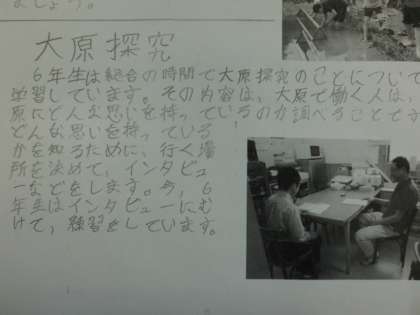 ましょう。
大原探究
6年生は総合の時間で大原探究のことについて
学習しています。その内容は、大原で働く人は、
原にどんな思いを持っているのか調べることです
どんな思いを持っている
かを知るために、行く場
所を決めて、インタビュ
ーなどをします。今、6
年生はインタビューにむ
けて、練習をしています。